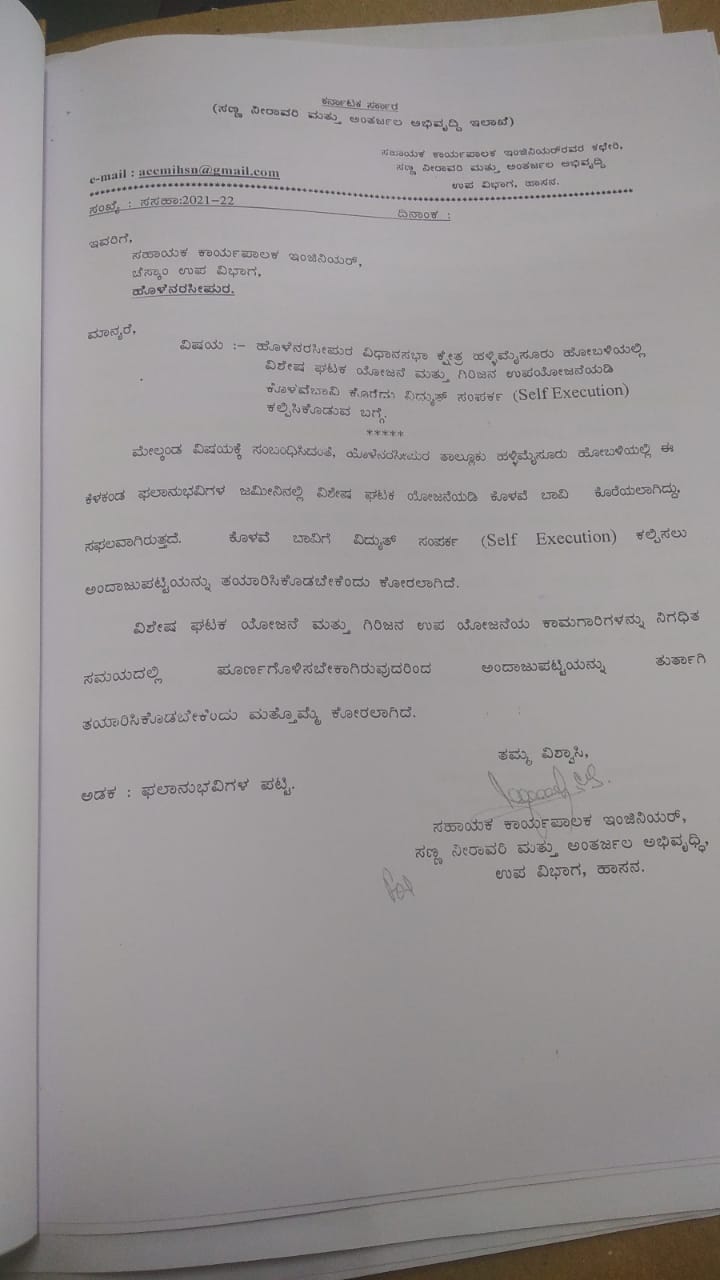 ಕರ್ನಾಟಕ ಸರ್ಕಾರ
(ಸಣ್ಣ ನೀರಾವರಿ ಮತ್ತು ಅಂತರ್ಜಲ ಅಭಿವೃದ್ದಿ ಇಲಾಖೆ)
ಸಹಾಯಕ ಕಾರ್ಯಪಾಲಕ ಇಂಜಿನಿಯರ್‌ರವರ ಕಛೇರಿ,
e-mail : aeemihsn@gmail.com ಸಣ್ಣ ನೀರಾವರಿ ಮತ್ತು ಅಂತರ್ಜಲ ಅಭಿವೃದ್ಧಿ
ಉಪ ವಿಭಾಗ, ಹಾಸನ.
ಸಂಖ್ಯೆ : ಸಸಹಾ:2021-22 ದಿನಾಂಕ :
ಇವರಿಗೆ,
ಸಹಾಯಕ ಕಾರ್ಯಪಾಲಕ ಇಂಜಿನಿಯರ್,
ಚೆಸ್ಕಾಂ ಉಪ ವಿಭಾಗ,
ಹೊಳೆನರಸೀಪುರ.
ಮಾನ್ಯರೆ,
ವಿಷಯ :- ಹೊಳೆನರಸೀಪುರ ವಿಧಾನಸಭಾ ಕ್ಷೇತ್ರ ಹಳ್ಳಿಮೈಸೂರು ಹೋಬಳಿಯಲ್ಲಿ
ವಿಶೇಷ ಘಟಕ ಯೋಜನೆ ಮತ್ತು ಗಿರಿಜನ ಉಪಯೋಜನೆಯಡಿ
ಕೊಳವೆಬಾವಿ ಕೊರೆದು ವಿದ್ಯುತ್ ಸಂಪರ್ಕ (Self Execution)
ಕಲ್ಪಿಸಿಕೊಡುವ ಬಗ್ಗೆ.
*****
ಮೇಲ್ಕಂಡ ವಿಷಯಕ್ಕೆ ಸಂಬಂಧಿಸಿದಂತೆ, ಹೊಳೆನರಸೀಪುರ ತಾಲ್ಲೂಕು ಹಳ್ಳಿಮೈಸೂರು ಹೋಬಳಿಯಲ್ಲಿ ಈ
ಕೆಳಕಂಡ ಫಲಾನುಭವಿಗಳ ಜಮೀನಿನಲ್ಲಿ ವಿಶೇಷ ಘಟಕ ಯೋಜನೆಯಡಿ ಕೊಳವೆ ಬಾವಿ ಕೊರೆಯಲಾಗಿದ್ದು,
ಸಫಲವಾಗಿರುತ್ತದೆ. ಕೊಳವೆ ಬಾವಿಗೆ ವಿದ್ಯುತ್ ಸಂಪರ್ಕ (Self Execution) ಕಲ್ಪಿಸಲು
ಅಂದಾಜುಪಟ್ಟಿಯನ್ನು ತಯಾರಿಸಿಕೊಡಬೇಕೆಂದು ಕೋರಲಾಗಿದೆ.
ವಿಶೇಷ ಘಟಕ ಯೋಜನೆ ಮತ್ತು ಗಿರಿಜನ ಉಪ ಯೋಜನೆಯ ಕಾಮಗಾರಿಗಳನ್ನು ನಿಗಧಿತ
ಸಮಯದಲ್ಲಿ ಪೂರ್ಣಗೊಳಿಸಬೇಕಾಗಿರುವುದರಿಂದ ಅಂದಾಜುಪಟ್ಟಿಯನ್ನು ತುರ್ತಾಗಿ
ತಯಾರಿಸಿಕೊಡಬೇಕೆಂದು ಮತ್ತೊಮ್ಮೆ ಕೋರಲಾಗಿದೆ.
ತಮ್ಮ ವಿಶ್ವಾಸಿ,
ಅಡಕ : ಫಲಾನುಭವಿಗಳ ಪಟ್ಟಿ.
ಸಹಾಯಕ ಕಾರ್ಯಪಾಲಕ ಇಂಜಿನಿಯರ್,
ಸಣ್ಣ ನೀರಾವರಿ ಮತ್ತು ಅಂತರ್ಜಲ ಅಭಿವೃದ್ಧಿ,
ಉಪ ವಿಭಾಗ, ಹಾಸನ.